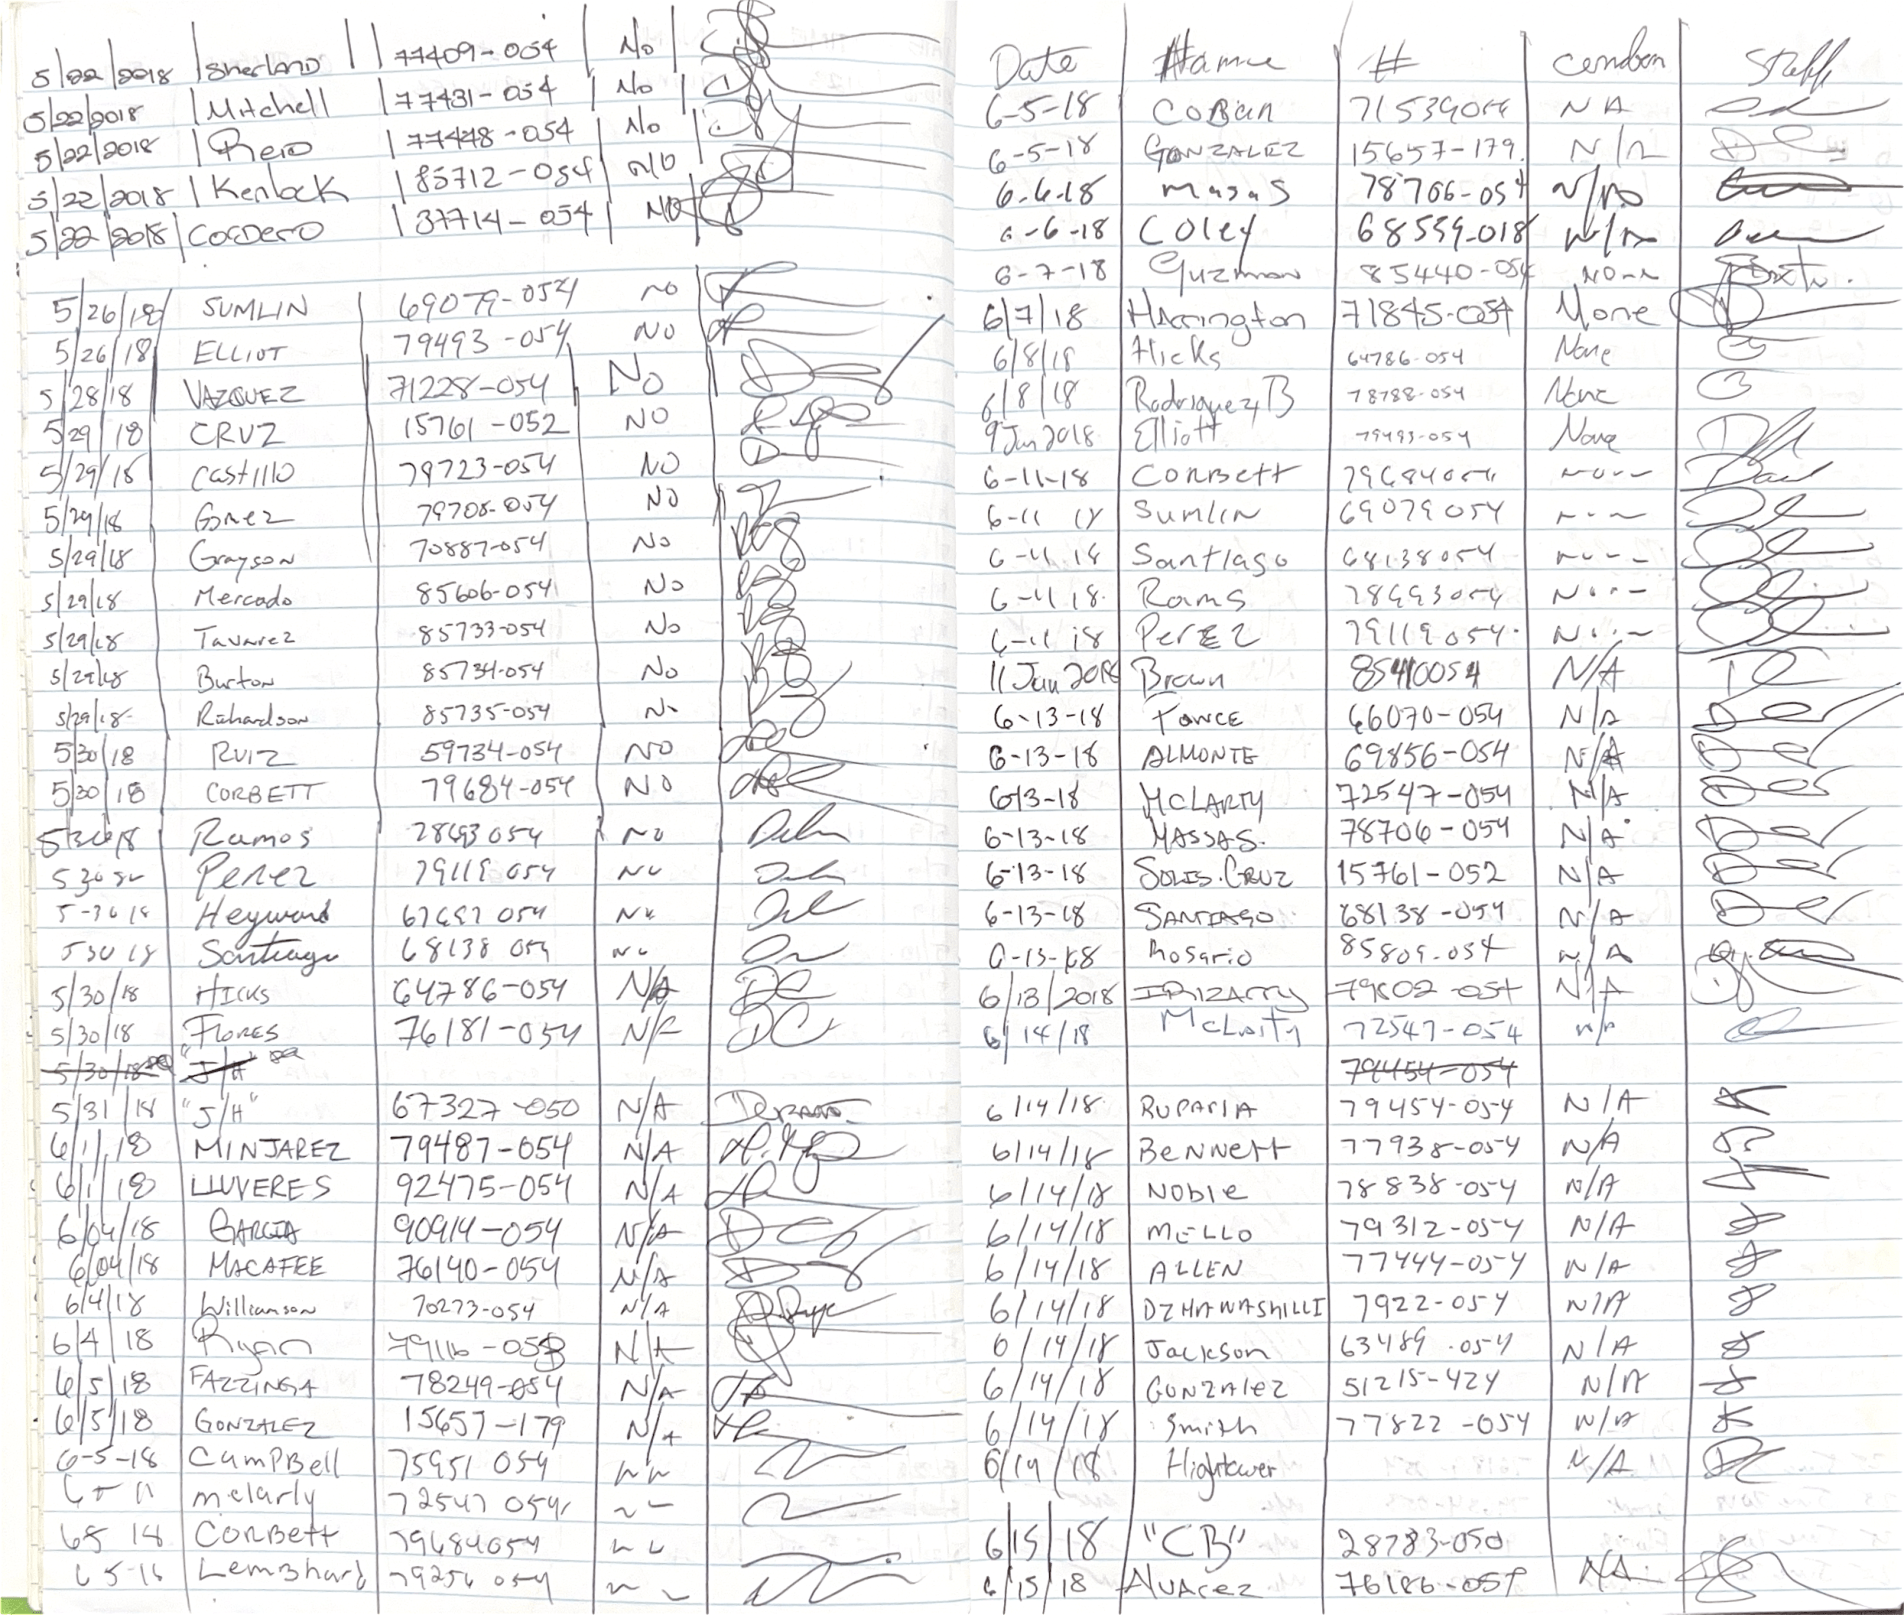 5/22/2018 Sherland 77409-054 No
5/22/2018 Mitchell 77431-054 No
5/22/2018 Reio 77448-054 No
5/22/2018 Kenlock 85712-054 N/O
5/22/2018 Cordero 37714-054 No
5/26/18 SUMLIN 69079-054 NO
5/26/18 ELLIOT 79493-054 NO
5/28/18 VAZQUEZ 71228-054 No
5/29/18 CRUZ 15761-052 NO
5/29/18 Castillo 79723-054 NO
5/29/18 Gomez 79708-054 NO
5/29/18 Grayson 70887-054 No
5/29/18 Mercado 85606-054 No
5/29/18 Tavarez 85733-054 No
5/29/18 Burton 85734-054 No
5/29/18 Richardson 85735-054 No
5/30/18 RUIZ 59734-054 NO
5/30/18 CORBETT 79684-054 NO
5/30/18 Ramos 78693 054 NO
5 30 18 Perez 79119 054
5-30 18 Heyward
5 30 18 Santiago 68138 054
5/30/18 HICKS 64786-054 N/A
5/30/18 FLORES 76181-054
5/30/18 "J/H"
5/31/18 "J/H" 67327-050 N/A
6/1/18 MINJAREZ 79487-054 N/A
6/1/18 LLUVERES 92475-054 N/A
6/04/18 GARCIA 90914-054 N/A
6/04/18 MACAFEE 76140-054 N/A
6/4/18 Williamson 70273-054 N/A
6/4/18 Ryan N/A
6/5/18 FAZZINGA 78249-054 N/A
6/5/18 GONZALEZ 15657-179 N/A
6-5-18 CamPBell 75951 054
mclarty 72547 054
6 5 18 CORBett 79684054
6 5-18 Lembhard 79256 054
Date Name #
6-5-18 COBan 71539054 NA
6-5-18 GONZALEZ 15657-179
6-6-18 masas 78706-054
6-6-18 Coley 68559-018
6-7-18 Guzman 85440-054
6/7/18 Harrington 71845-054 None
6/8/18 Hicks 64786-054 None
6/8/18 Rodriguez, B 78788-054 None
9 Jun 2018 Elliott 79493-054 None
6-11-18 CORBett 79684054
6-11 18 Sumlin 69079054
6-11 18 Santiago 68138054
6-11 18 Rams 78693054
6-11 18 PerEZ 79119054
11 Jun 2018 Brown 85410054 N/A
6-13-18 66070-054 N/A
6-13-18 ALMONTE 69856-054 N/A
6-13-18 MCLARTY 72547-054 N/A
6-13-18 MASSAS. 78706-054 N/A
6-13-18 SOLIS.CRUZ 15761-052 N/A
6-13-18 SANTIAGO 68138-054 N/A
6-13-18 Rosario 85809-054 N/A
6/13/2018 IRIZARRY 79802-054 N/A
6/14/18 McLarty 72547-054
79454-054
6/14/18 RUPARIA 79454-054 N/A
6/14/18 Bennett 77938-054 N/A
6/14/18 NOBle 78838-054 N/A
6/14/18 MELLO 79312-054 N/A
6/14/18 ALLEN 77444-054 N/A
6/14/18 DZHAWASHILLI 7922-054 N/A
6/14/18 Jackson 63489.054 N/A
6/14/18 GONZAlez 51215-424 N/A
6/14/18 Smith 77822-054 N/A
6/14/18 Hightower N/A
6/15/18 "CB" 28783-050
6/15/18 Alvarez 76186-054 N/A